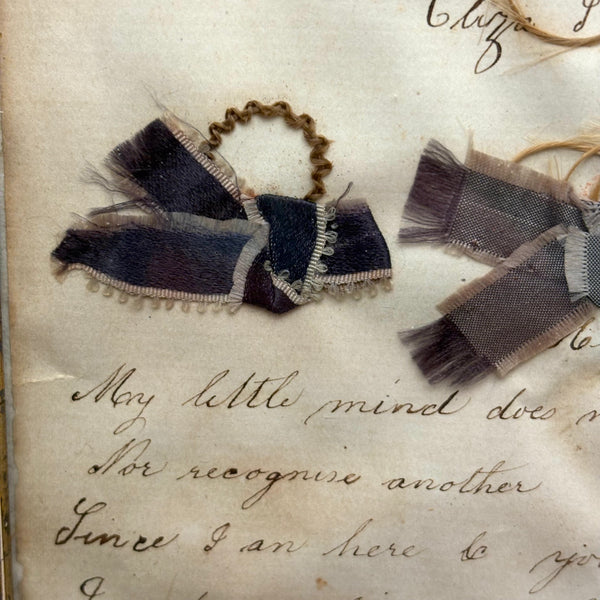 Eliza
My little mind does
Nor recognise another
Since I an here & yo
I